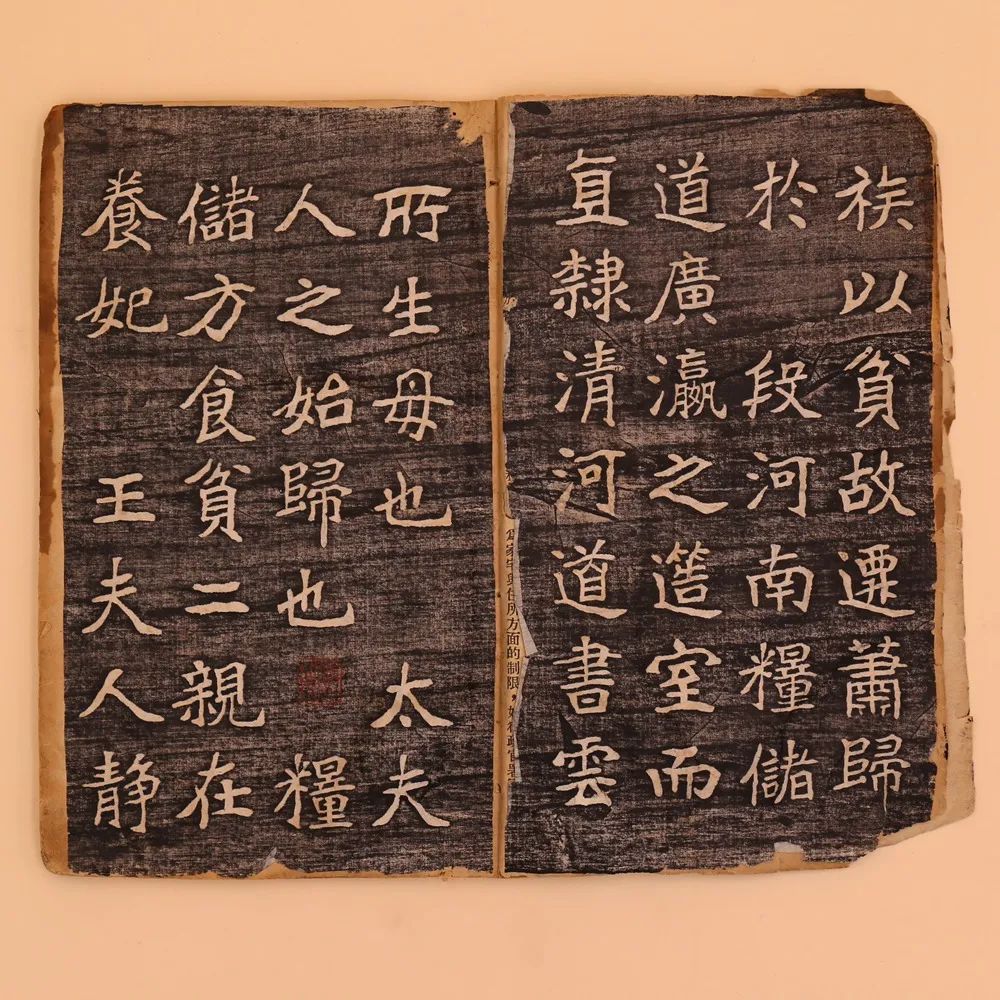 族以貧故遷蕭歸
於 段河南糧儲
道廣瀛之簉室而
直隸清河道書雲
所生母也 太夫
人之始歸也 糧
儲方食貧二親在
養妃 王夫人静
住所方面的制限，